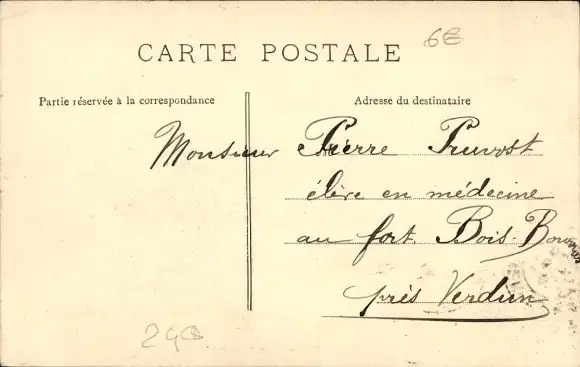 6€
CARTE POSTALE
Partie réservée à la correspondance
Adresse du destinataire
Monsieur Pierre Pruvost
élève en médecine
au fort Bois-Bourrus
près Verdun